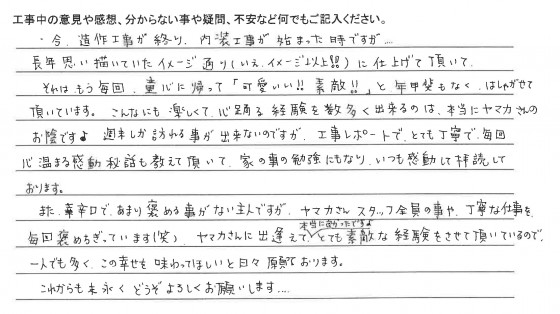 工事中の意見や感想、分からない事や疑問、不安など何でもご記入ください。
・今、造作工事が終り、内装工事が始まった時ですが…
長年思い描いていたイメージ通り(いえ、イメージ以上!!)に仕上げて頂いて、
それはもう毎回、童心に帰って「可愛いい!! 素敵!!」と年甲斐もなく、はしゃがせて
頂いています。こんなにも楽しくて、心踊る経験を数多く出来るのは、本当にヤマカさんの
お陰です♪ 週末しか訪れる事が出来ないのですが、工事レポートで、とても丁寧で、毎回
心温まる感動秘話も教えて頂いて、家の事の勉強にもなり、いつも感動して拝読して
おります。
また、辛口で、あまり褒める事がない主人ですが、ヤマカさんスタッフ全員の事や、丁寧な仕事を、
毎回褒めちぎっています(笑)、ヤマカさんに出逢えて本当に良かったですよ とても素敵な経験をさせて頂いているので、
一人でも多く、この幸せを味わってほしいと日々願っております。
これからも末永くどうぞよろしくお願いします….